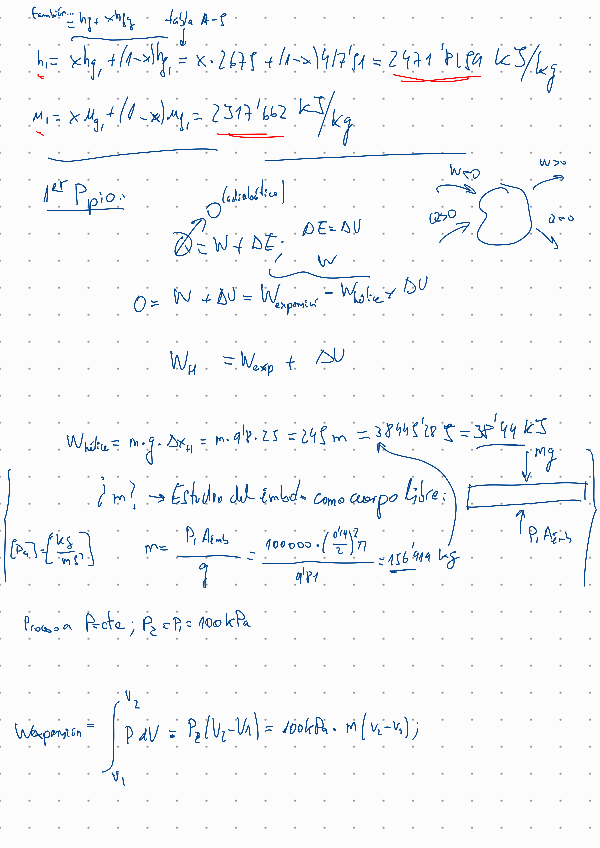 también... = hf + xhfg tabla A-5
h₁ = xhg₁ + (1-x)hf₁ = x · 2675 + (1-x)417'51 = 2471'8159 kJ/kg
u₁ = xug₁ + (1-x)uf₁ = 2317'662 kJ/kg
1er Ppio.:
(adiabático)
0
Q = W + ΔE; ΔE = ΔU
W<0 W>0
Q>0 Q<0
W
0 = W + ΔU = Wexpansión - Whélice + ΔU
WH = Wexp + ΔU
Whélice = m·g·ΔxH = m·9'8·25 = 245m = 38445'28 J = 38'44 kJ
¿m? → Estudio del émbolo como cuerpo libre:
mg
P₁Aémb
[Pa] = [kg/ms²]
m = P₁Aémb/g = 100000·(0'14/2)²π/9'81 = 156'919 kg
Proceso a P=cte; P₂ = P₁ = 100kPa
Wexpansión = ∫V₁V₂ P dV = P₂(V₂-V₁) = 100kPa · m(v₂-v₁);